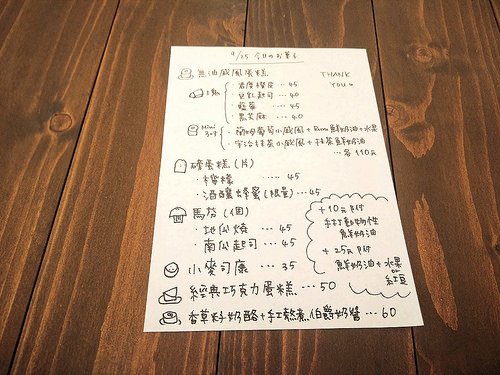 9/25 今日のお菓子
無油戚風蛋糕
THANK
YOU
1點
君度橙皮 ‥‥ 45
豆乳起司 ‥‥ 40
藍莓 ‥‥ 45
黑芝麻 ‥‥ 40
Mini
3吋
蘭姆葡萄小戚風 + Rum鮮奶油 + 水果
宇治抹茶小戚風 + 抹茶鮮奶油
‥‥ 各110元
磅蛋糕(片)
・檸檬 ‥‥‥ 45
・酒釀蜂蜜(根莖)‥45
馬芬(個)
・地瓜燒 ‥‥ 45
・南瓜起司 ‥‥ 45
小麥司康 ‥‥ 35
經典巧克力蛋糕 ‥‥ 50
香草籽奶酪 + 手工熬煮伯爵奶醬 ‥‥ 60
+10元 附
手打動物性
鮮奶油
+25元 附
鮮奶油 + 水果
or
紅豆